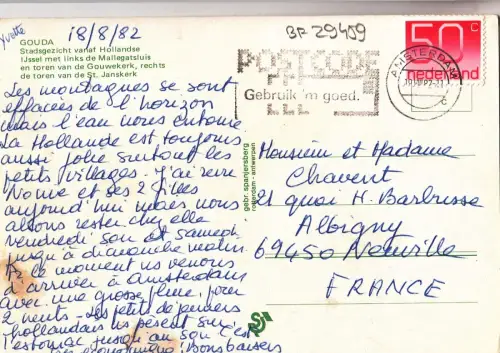 Yvette
18/8/82
BP 29459
GOUDA
Stadsgezicht vanaf Hollandse
IJssel met links de Mallegatsluis
en toren van de Gouwekerk, rechts
de toren van de St. Janskerk
POSTCODE
Gebruik 'm goed.
AMSTERDAM
50 c
nederland
Les montagnes se sont
effacées de l'horizon
mais l'eau nous entoure
La Hollande est toujours
aussi jolie surtout les
petits villages. J'ai revu
et ses 2 filles
aujourd'hui mais nous
allons rester chez elle
vendredi soir et samedi
jusqu'à dimanche matin.
Pr le moment ns venons
d'arriver à Amsterdam
avec une grosse pour
2 nuits - Les petits déjeuners
hollandais ns pèsent sur
l'estomac jusqu'au soir c'est
très économique! Bons baisers
gebr. spanjersberg
rotterdam - antwerpen
Monsieur et Madame
Chavent
21 quai H. Barbusse
Albigny
69450 Neuville
FRANCE